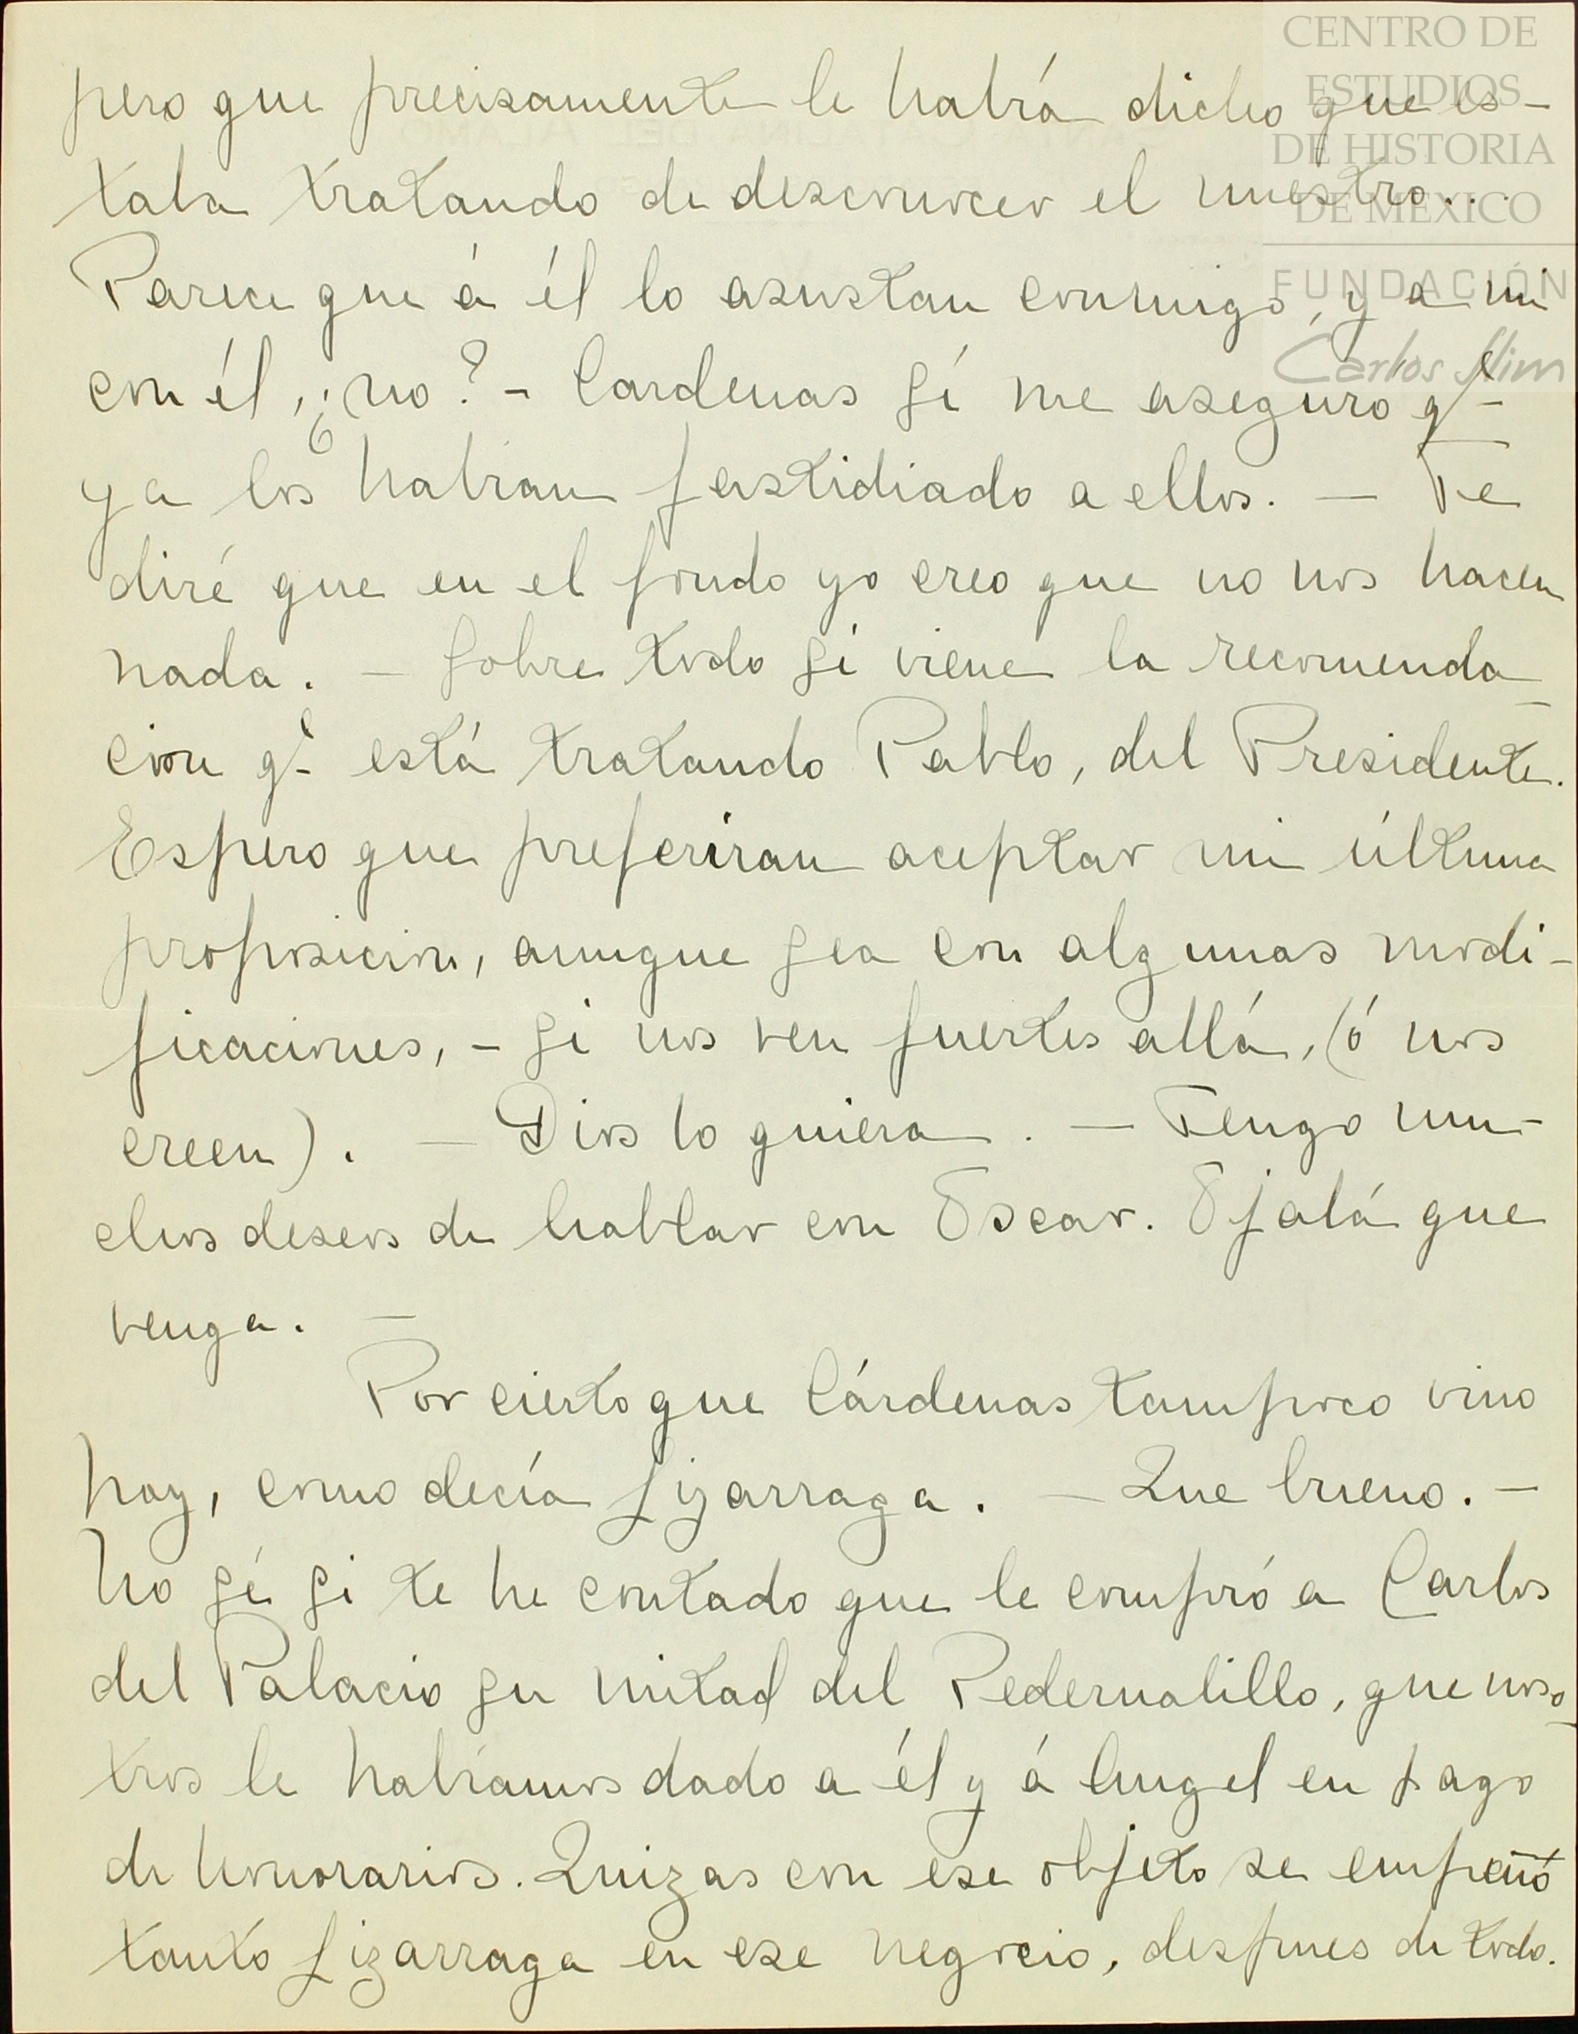 CENTRO DE
ESTUDIOS
DE HISTORIA
DE MEXICO
FUNDACIÓN
Carlos Slim
pero que precisamente le habrá dicho que es-
taba tratando de desconocer el nuestro...
Parece que á él lo asustan conmigo, y a mi
con él, ¿no? - Cardenas sí me aseguro qe
ya los habian fastidiado a ellos. — Te
diré que en el fondo yo creo que no nos hacen
nada. — Sobre todo si viene la recomenda-
cion qe está tratando Pablo, del Presidente.
Espero que preferiran aceptar mi última
proposicion, aunque sea con algunas modi-
ficaciones, - si nos ven fuertes allá, (ó nos
creen). — Dios lo quiera. — Tengo mu-
chos deseos de hablar con Oscar. Ojalá que
venga. —
Por cierto que Cárdenas tampoco vino
hoy, como decía Lizarraga. — Que bueno. —
No sé si te he contado que le compró a Carlos
del Palacio su mitad del Pedernalillo, que noso-
tros le habíamos dado a él y á Angel en pago
de honorarios. Quizas con ese objeto se empeñó
tanto Lizarraga en ese negocio, despues de todo.